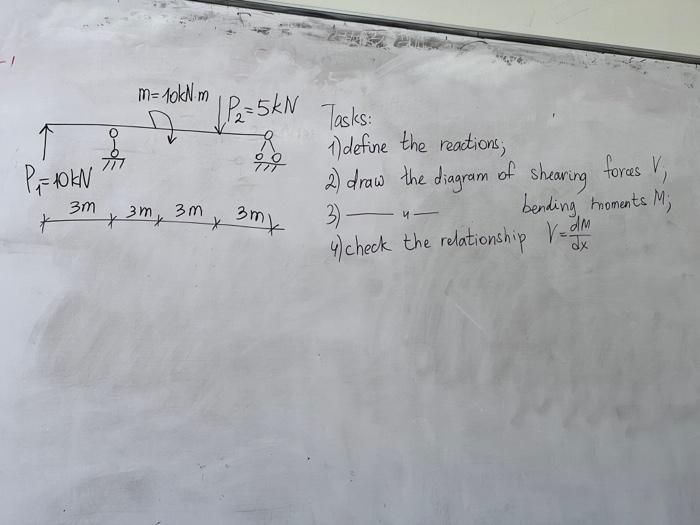 -1
m=10kN·m
P₂=5kN
P₁=10kN
3m 3m 3m 3m
Tasks:
1) define the reactions;
2) draw the diagram of shearing forces V;
3) —— " —— bending moments M;
4) check the relationship V=dM/dx